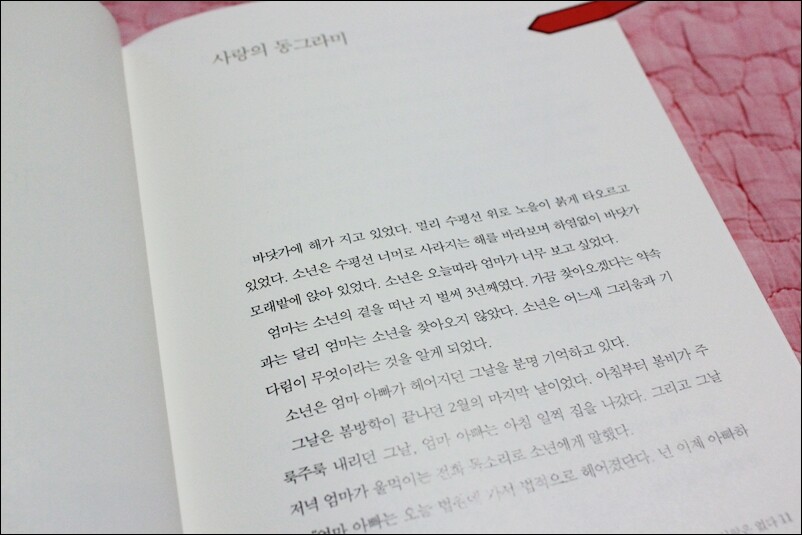 사랑의 동그라미
바닷가에 해가 지고 있었다. 멀리 수평선 위로 노을이 붉게 타오르고
있었다. 소년은 수평선 너머로 사라지는 해를 바라보며 하염없이 바닷가
모래밭에 앉아 있었다. 소년은 오늘따라 엄마가 너무 보고 싶었다.
엄마는 소년의 곁을 떠난 지 벌써 3년째였다. 가끔 찾아오겠다는 약속
과는 달리 엄마는 소년을 찾아오지 않았다. 소년은 어느새 그리움과 기
다림이 무엇이라는 것을 알게 되었다.
소년은 엄마 아빠가 헤어지던 그날을 분명 기억하고 있다.
그날은 봄방학이 끝나던 2월의 마지막 날이었다. 아침부터 봄비가 주
룩주룩 내리던 그날, 엄마 아빠는 아침 일찍 집을 나갔다. 그리고 그날
저녁 엄마가 울먹이는 전화 목소리로 소년에게 말했다.
"엄마 아빠는 오늘 법원에 가서 법적으로 헤어졌단다. 넌 이제 아빠하
없다 11